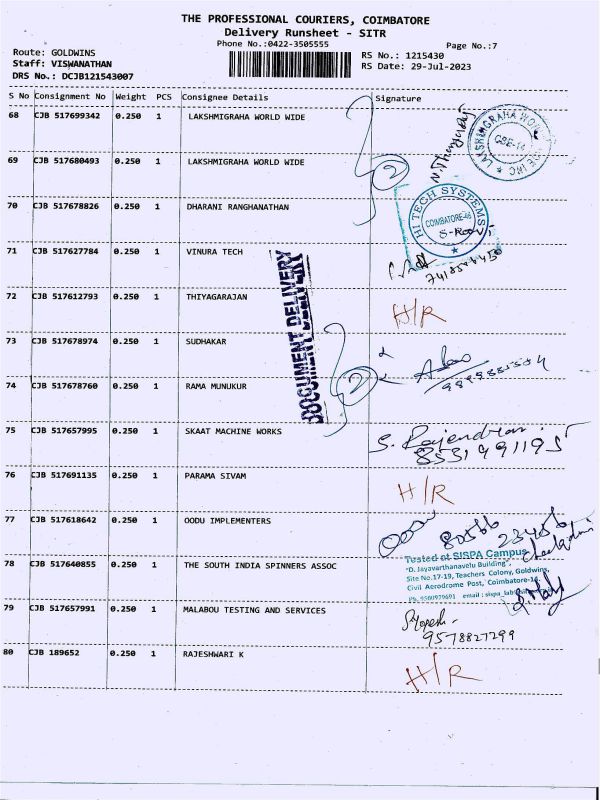 THE PROFESSIONAL COURIERS, COIMBATORE
Delivery Runsheet - SITR
Phone No.:0422-3505555
Page No.:7
Route: GOLDWINS
Staff: VISWANATHAN
DRS No.: DCJB121543007
RS No.: 1215430
RS Date: 29-Jul-2023
S No Consignment No Weight PCS Consignee Details Signature
68 CJB 517699342 0.250 1 LAKSHMIGRAHA WORLD WIDE
69 CJB 517680493 0.250 1 LAKSHMIGRAHA WORLD WIDE
2
70 CJB 517678826 0.250 1 DHARANI RANGHANATHAN
HI TECH SYSTEMS
COIMBATORE-46
71 CJB 517627784 0.250 1 VINURA TECH
DOCUMENT DELIVERY
72 CJB 517612793 0.250 1 THIYAGARAJAN H/R
73 CJB 517678974 0.250 1 SUDHAKAR
74 CJB 517678760 0.250 1 RAMA MUNUKUR
2
75 CJB 517657995 0.250 1 SKAAT MACHINE WORKS S. Rajendran
8531991195
76 CJB 517691135 0.250 1 PARAMA SIVAM H/R
77 CJB 517618642 0.250 1 OODU IMPLEMENTERS Oodu 80566 23456
78 CJB 517640855 0.250 1 THE SOUTH INDIA SPINNERS ASSOC
Tested at SISPA Campus
"D. Jayavarthanavelu Building",
Site No.17-19, Teachers Colony, Goldwins,
Civil Aerodrome Post, Coimbatore-14.
79 CJB 517657991 0.250 1 MALABOU TESTING AND SERVICES
9578827299
80 CJB 189652 0.250 1 RAJESHWARI K H/R